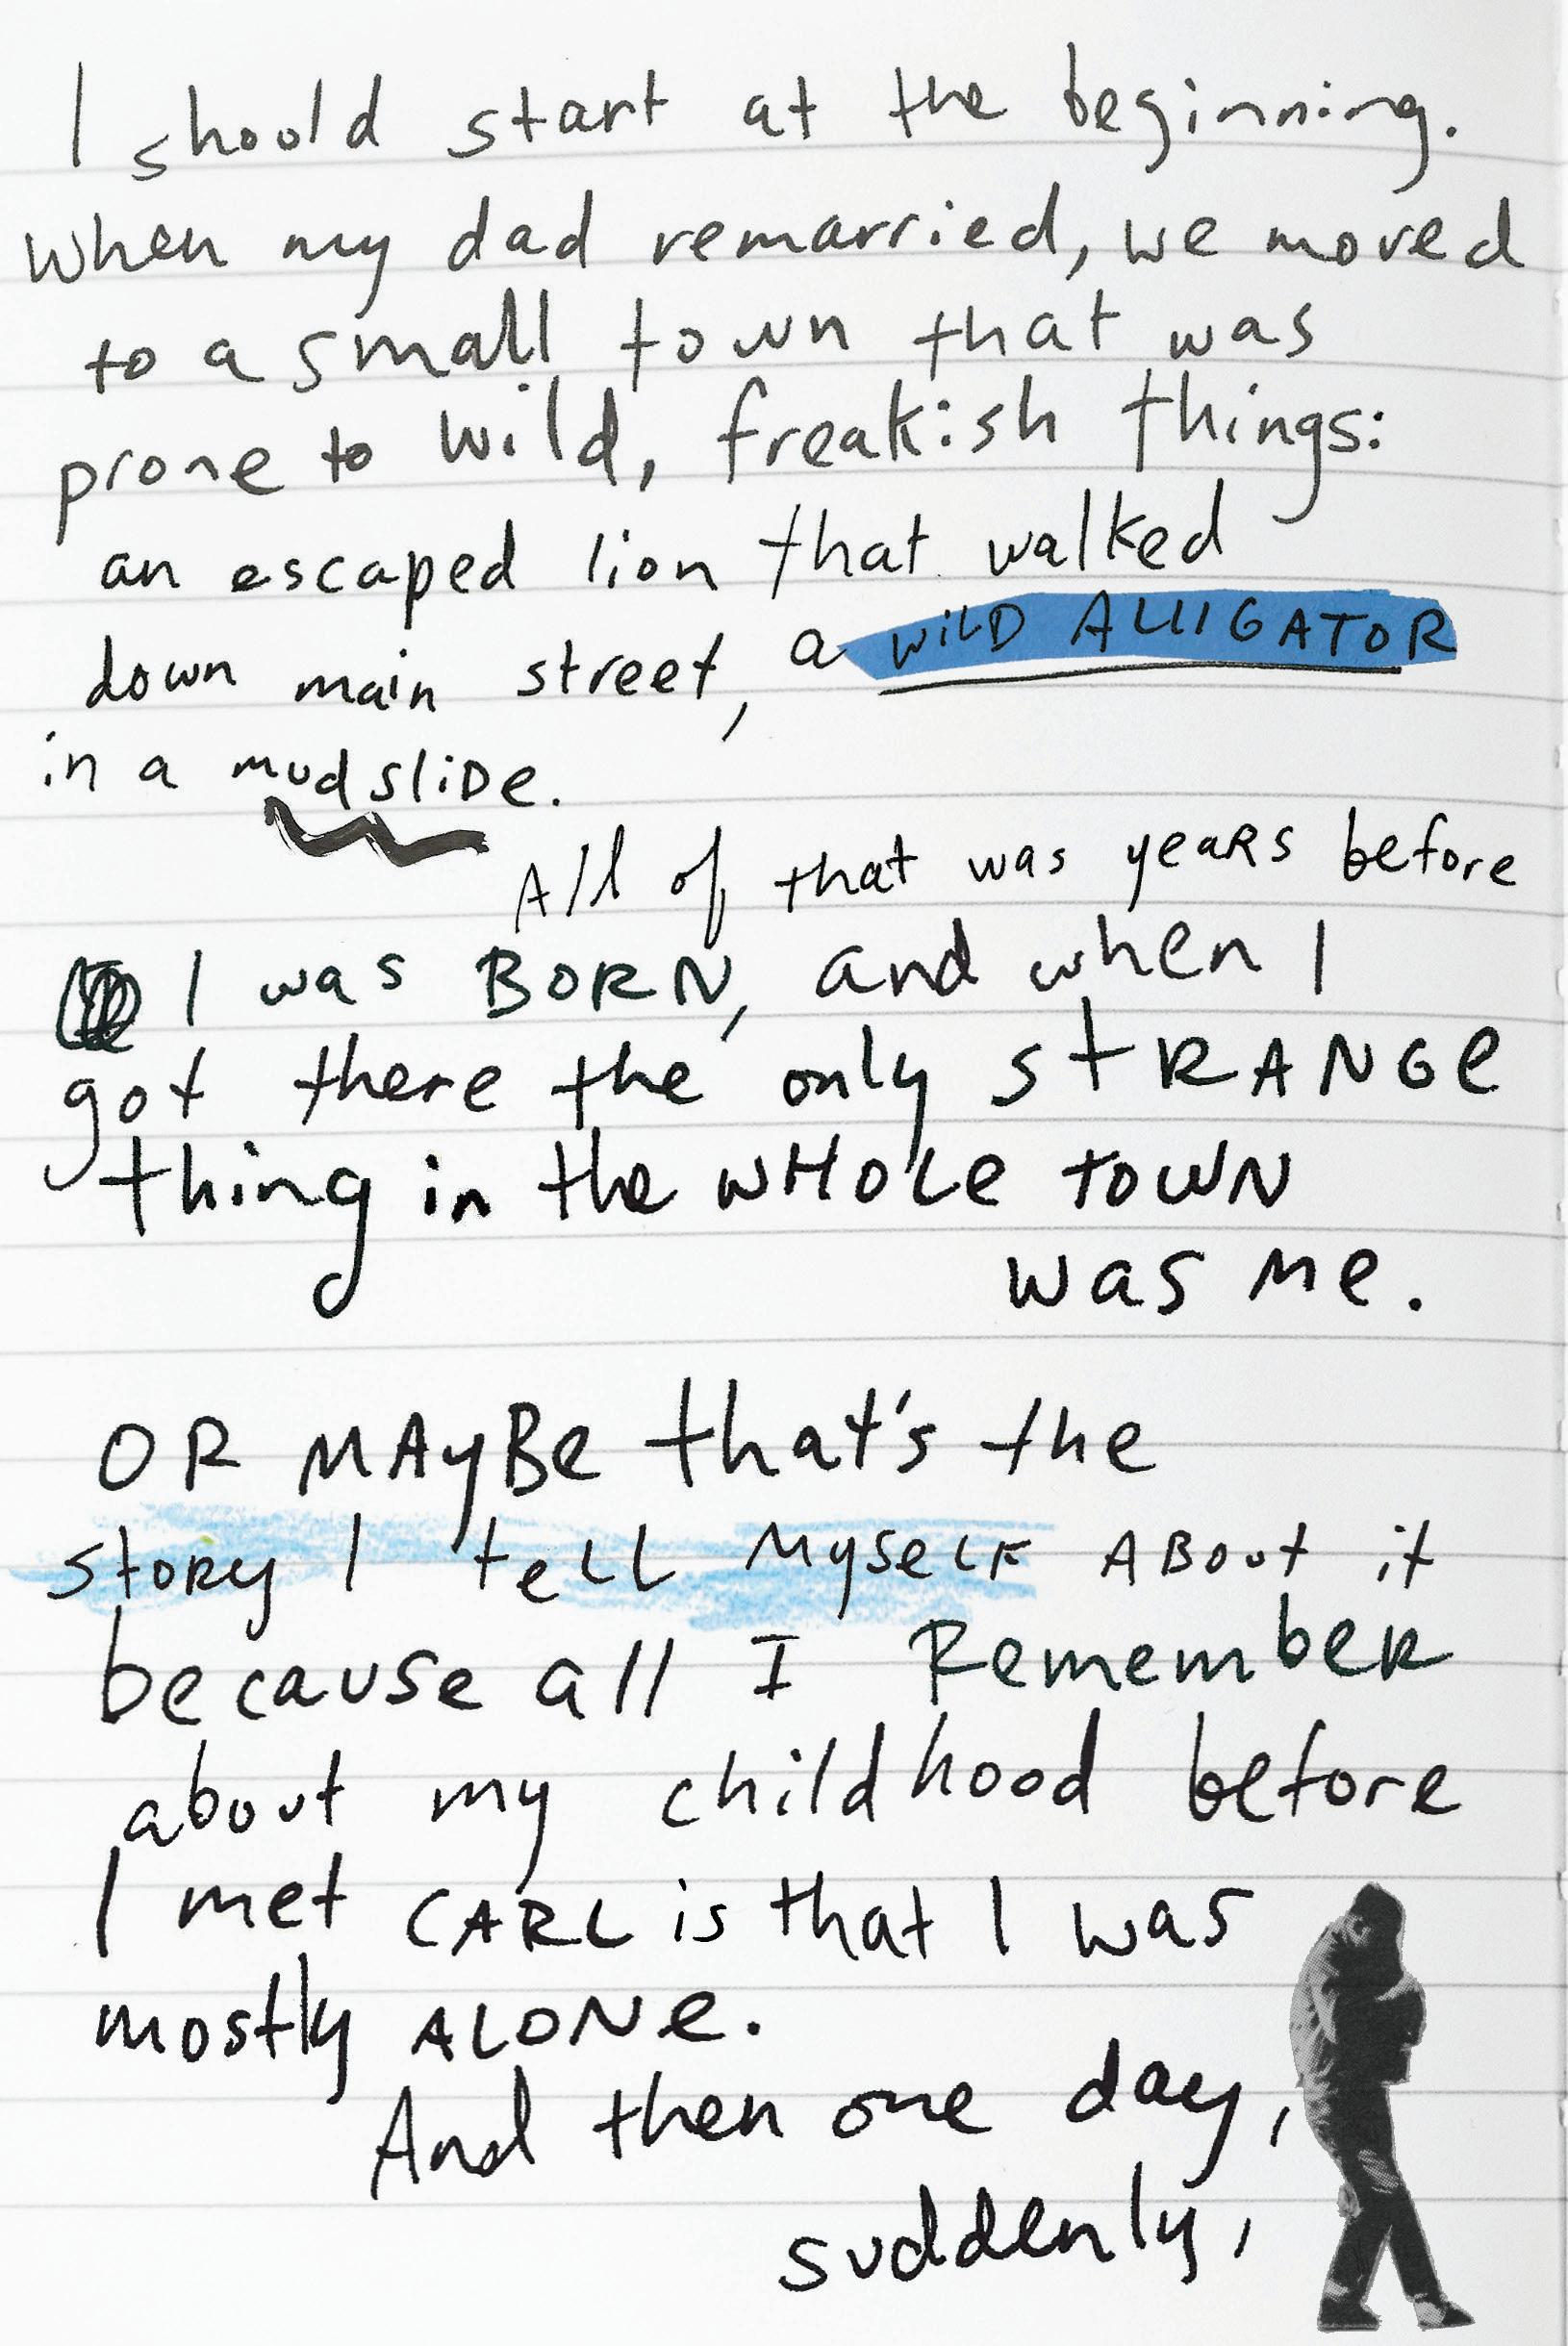 I should start at the beginning.
when my dad remarried, we moved
to a small town that was
prone to wild, freakish things:
an escaped lion that walked
down main street, a WiLD ALLIGATOR
in a mudsliDe.
All of that was yeaRS before
I was BORN, and when I
got there the only stRANGe
thing in the wHOLe TOWN
was Me.
OR MAyBe that's the
stORy I teLL MyseLF ABout it
because all I RemembeR
about my childhood before
I met CARL is that I was
mostly ALONe.
And then one day,
suddenly,